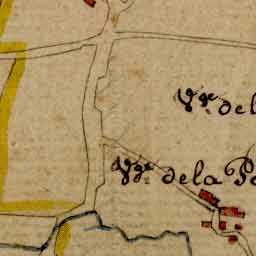 V.ge de l
V.ge de la P